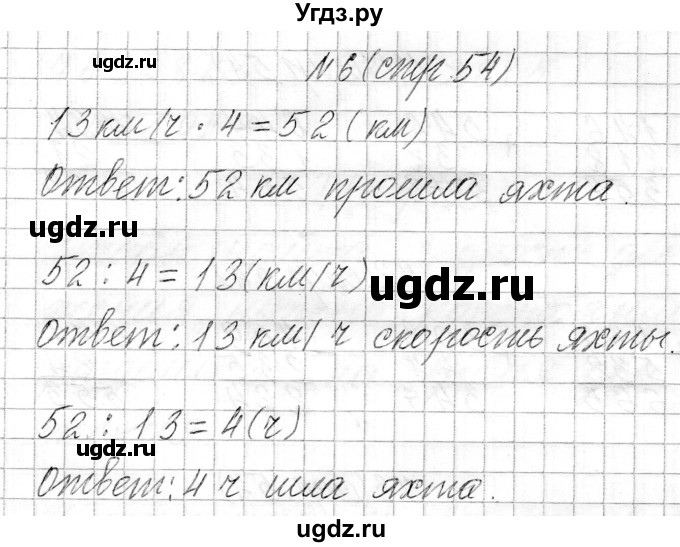 Угдз.ру
ugdz.ru
N 6 (стр 54)
13 км/ч · 4 = 52 (км)
Ответ: 52 км прошла яхта.
ugdz.ru
52 : 4 = 13 (км/ч)
ugdz.ru
Ответ: 13 км/ч скорость яхты.
52 : 13 = 4 (ч)
ugdz.ru
Ответ: 4 ч шла яхта.
ugdz.ru
ugdz.ru